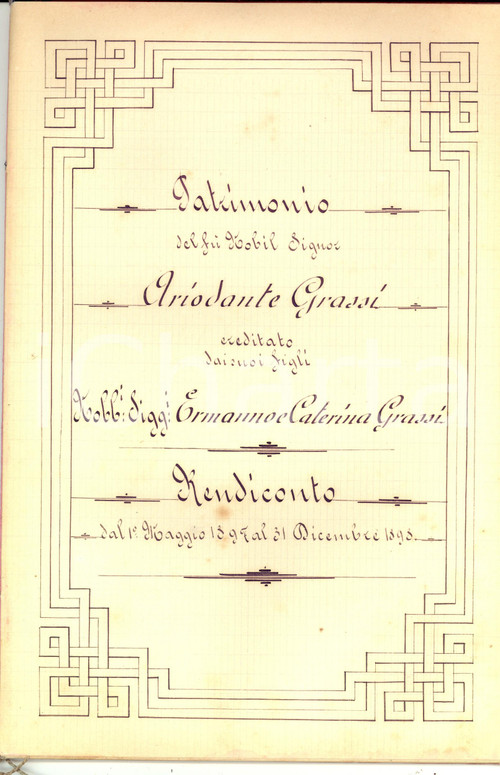 Patrimonio
del fu Nobil Signor
Ariodante Grassi
ereditato
dai suoi figli
Nobb.i Sigg.i Ermanno e Caterina Grassi
Rendiconto
dal 1° Maggio 1897 al 31 Dicembre 1898